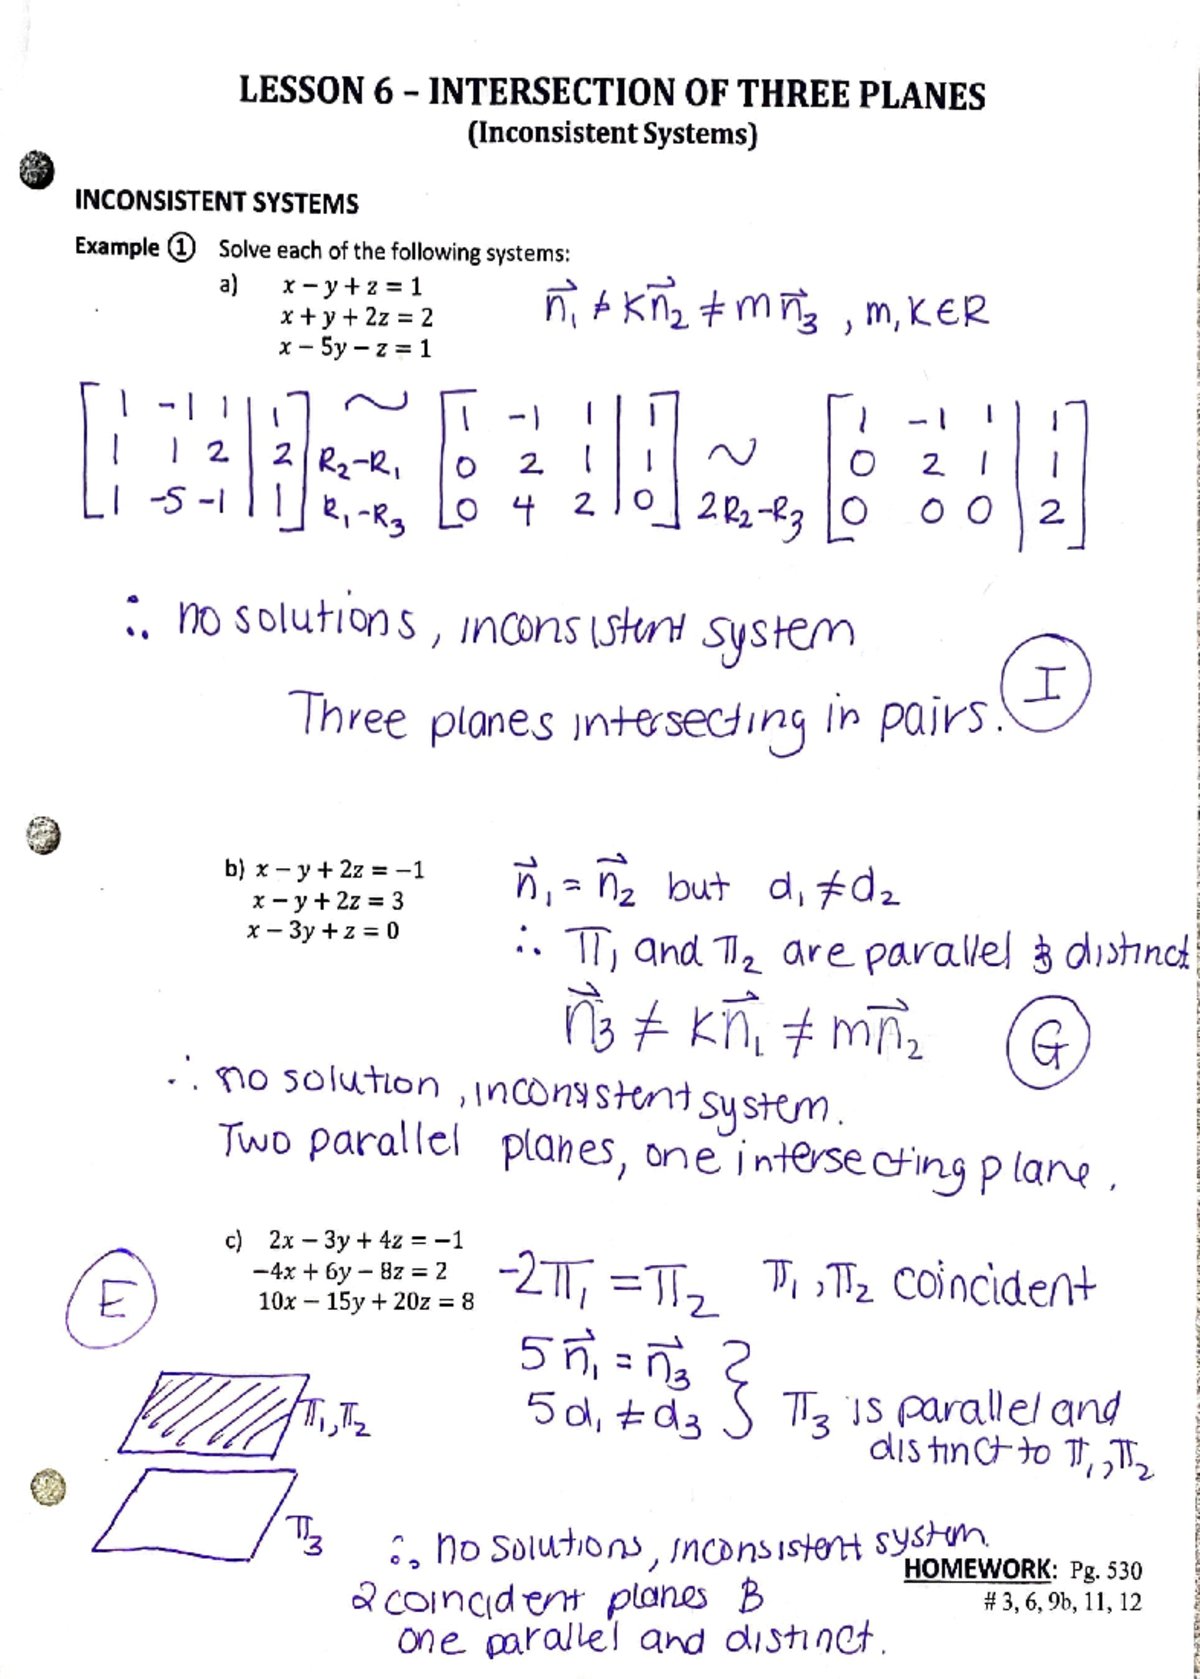 LESSON 6 – INTERSECTION OF THREE PLANES
(Inconsistent Systems)
INCONSISTENT SYSTEMS
Example ① Solve each of the following systems:
a) x – y + z = 1
x + y + 2z = 2
x – 5y – z = 1
n⃗₁ ≠ Kn⃗₂ ≠ mn⃗₃ , m, K ∈ R
[1 -1 1 | 1] ~ [1 -1 1 | 1] [1 -1 1 | 1]
[1 1 2 | 2] R₂-R₁ [0 2 1 | 1] ~ [0 2 1 | 1]
[1 -5 -1 | 1] R₁-R₃ [0 4 2 | 0] 2R₂-R₃ [0 0 0 | 2]
∴ no solutions, inconsistent system
Three planes intersecting in pairs. I
b) x – y + 2z = –1
x – y + 2z = 3
x – 3y + z = 0
n⃗₁ = n⃗₂ but d₁ ≠ d₂
∴ π₁ and π₂ are parallel & distinct
n⃗₃ ≠ Kn⃗₁ ≠ mn⃗₂ G
∴ no solution, inconsistent system.
Two parallel planes, one intersecting plane.
c) 2x – 3y + 4z = –1
–4x + 6y – 8z = 2
10x – 15y + 20z = 8
E
-2π₁ = π₂ π₁, π₂ coincident
5n⃗₁ = n⃗₃
5d₁ ≠ d₃ } π₃ is parallel and
distinct to π₁, π₂
π₁, π₂
π₃
∴ no solutions, inconsistent system.
2 coincident planes &
one parallel and distinct.
HOMEWORK: Pg. 530
# 3, 6, 9b, 11, 12